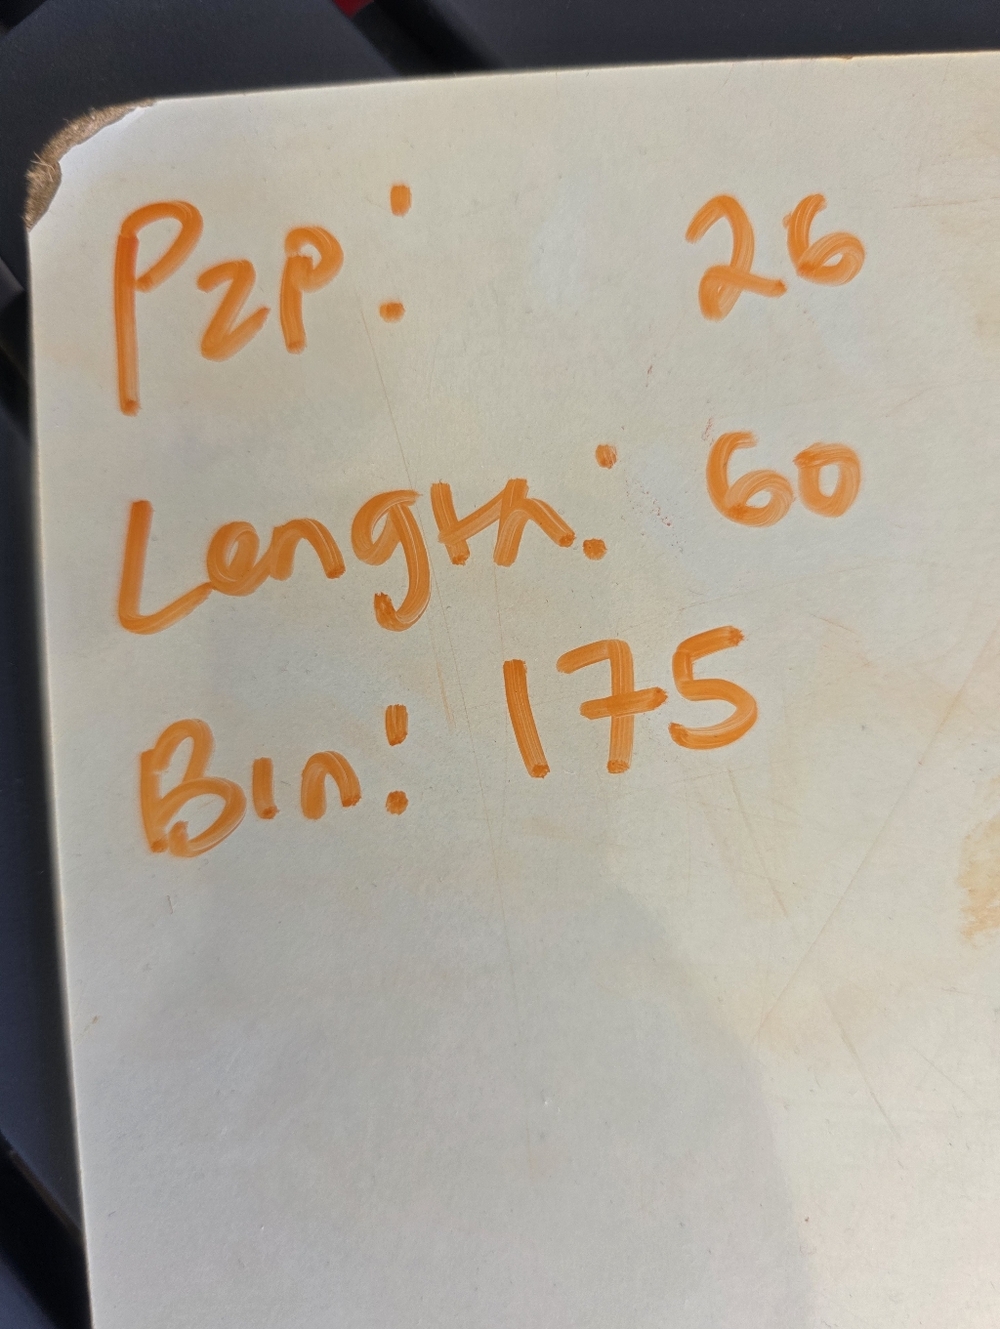 P2P: 26
Length: 60
Bin: 175